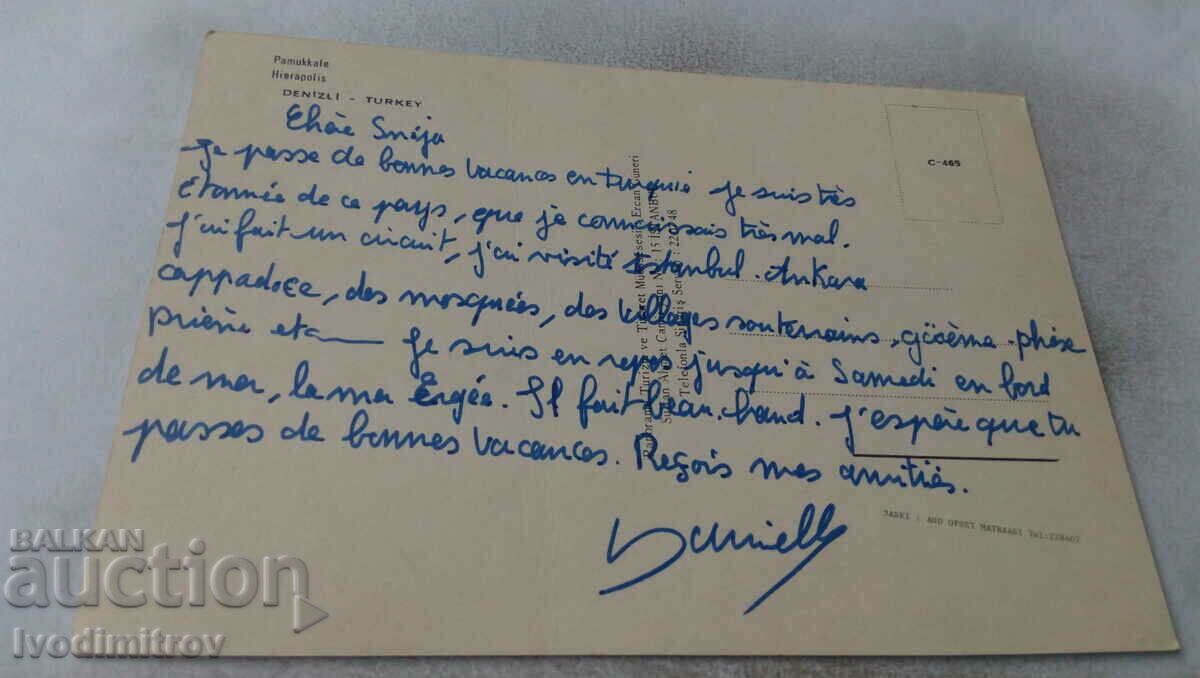 Pamukkale
Hierapolis
DENİZLİ - TURKEY
C-465
Chère Snéja
Je passe de bonnes vacances en Turquie je suis très
étonnée de ce pays, que je connaissais très mal.
J'ai fait un circuit, j'ai visité Istanbul. Ankara
cappadoce, des mosquées, des villages souterrains, göreme. phèse
priène etc Je suis en repos jusqu'à Samedi en bord
de mer, la mer Égée. Il fait beau. chaud. J'espère que tu
passes de bonnes vacances. Reçois mes amitiés.
Danielle
Panorama Turizm ve Ticaret Müessesesi Ercan
15 İSTANBUL
Telefonla Sipariş Servisi : 22 48
BASKI : AND OFSET MATBAASI Tel:228602
BALKAN
auction
Ivodimitrov